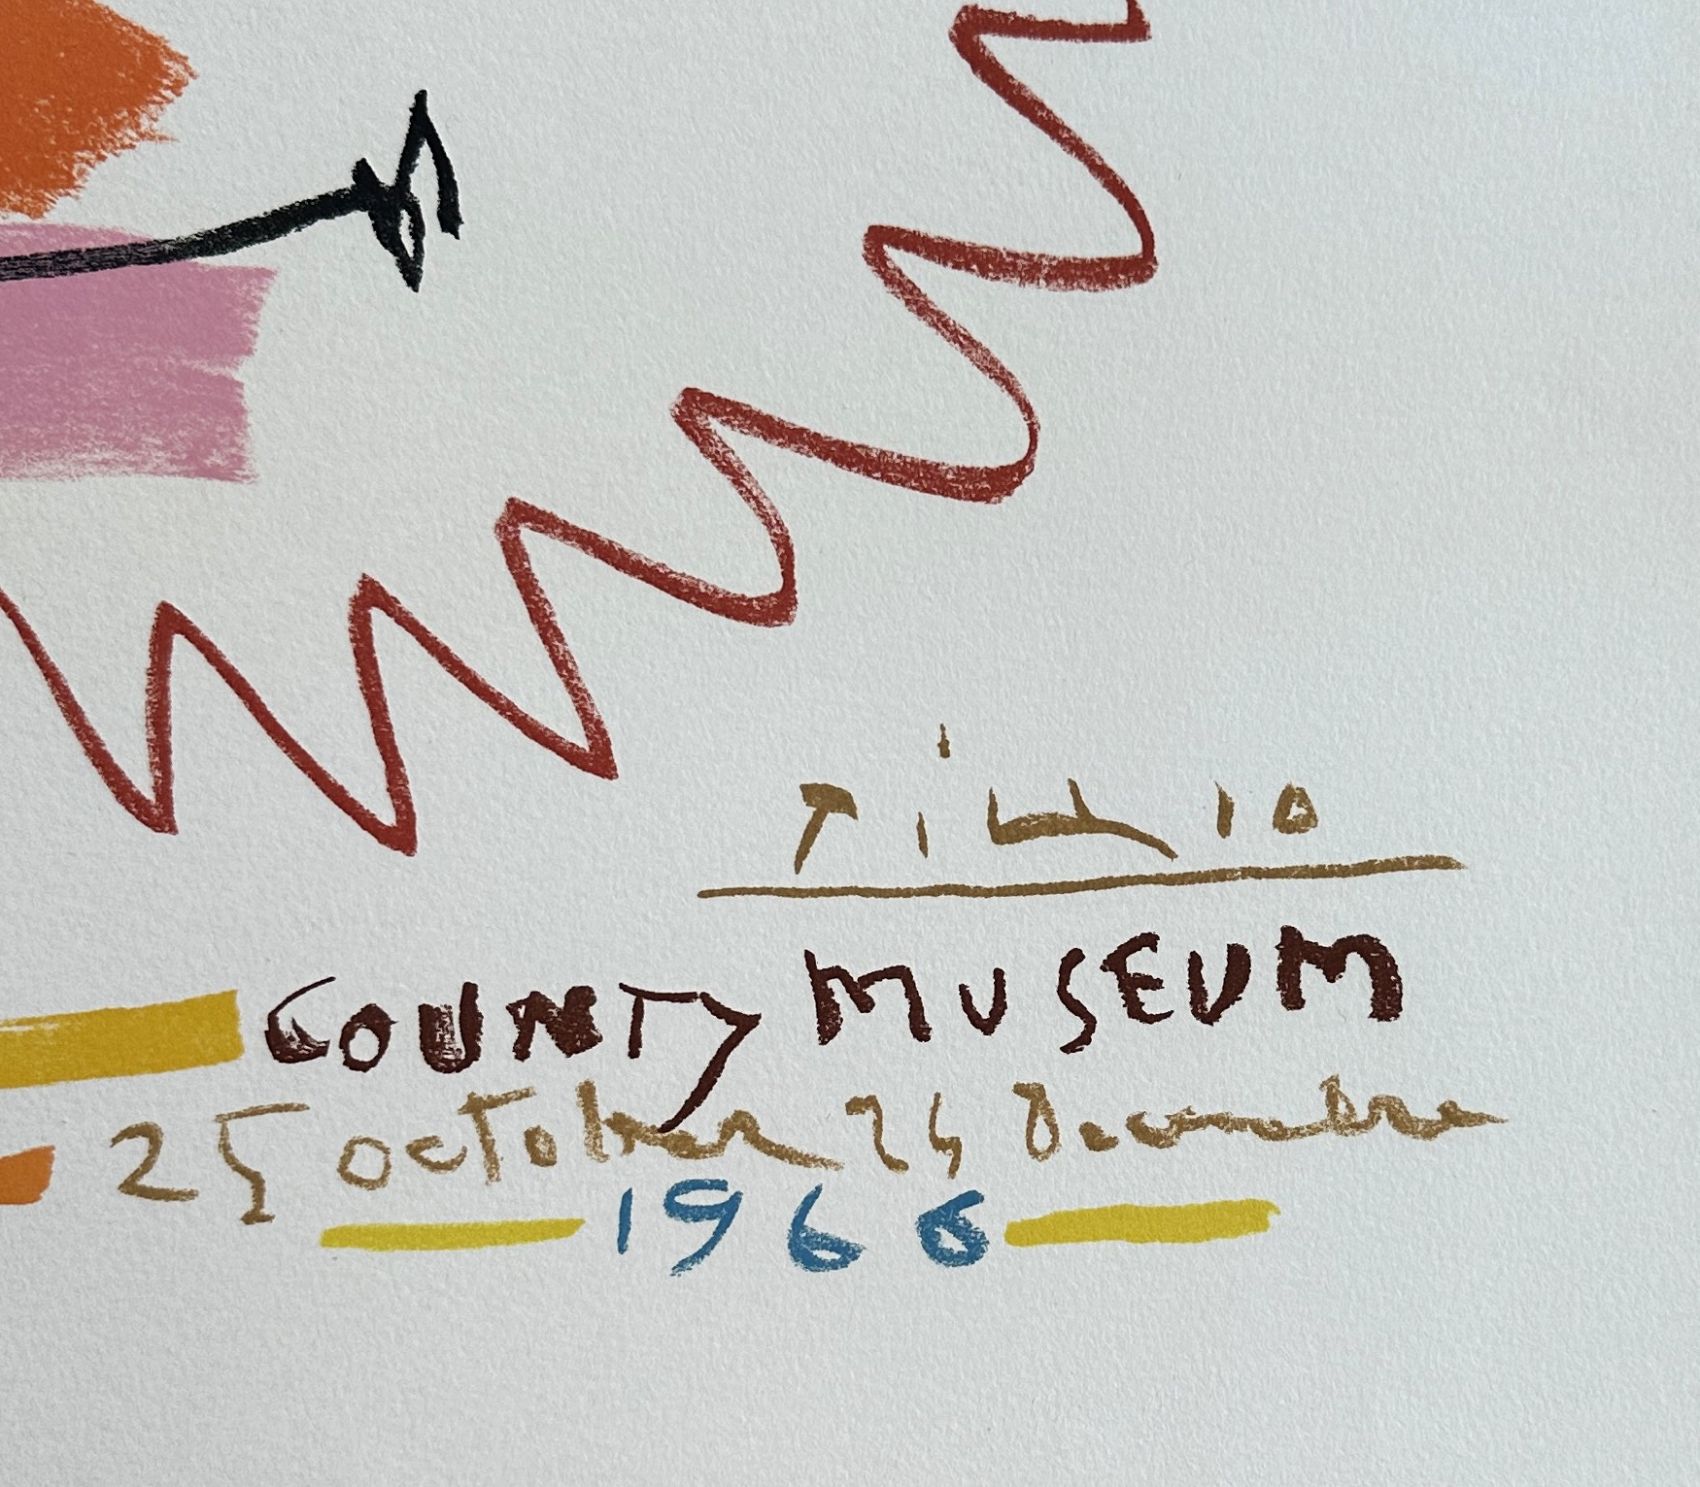 Picasso
COUNTY MUSEUM
25 october 24 Decembre
1966